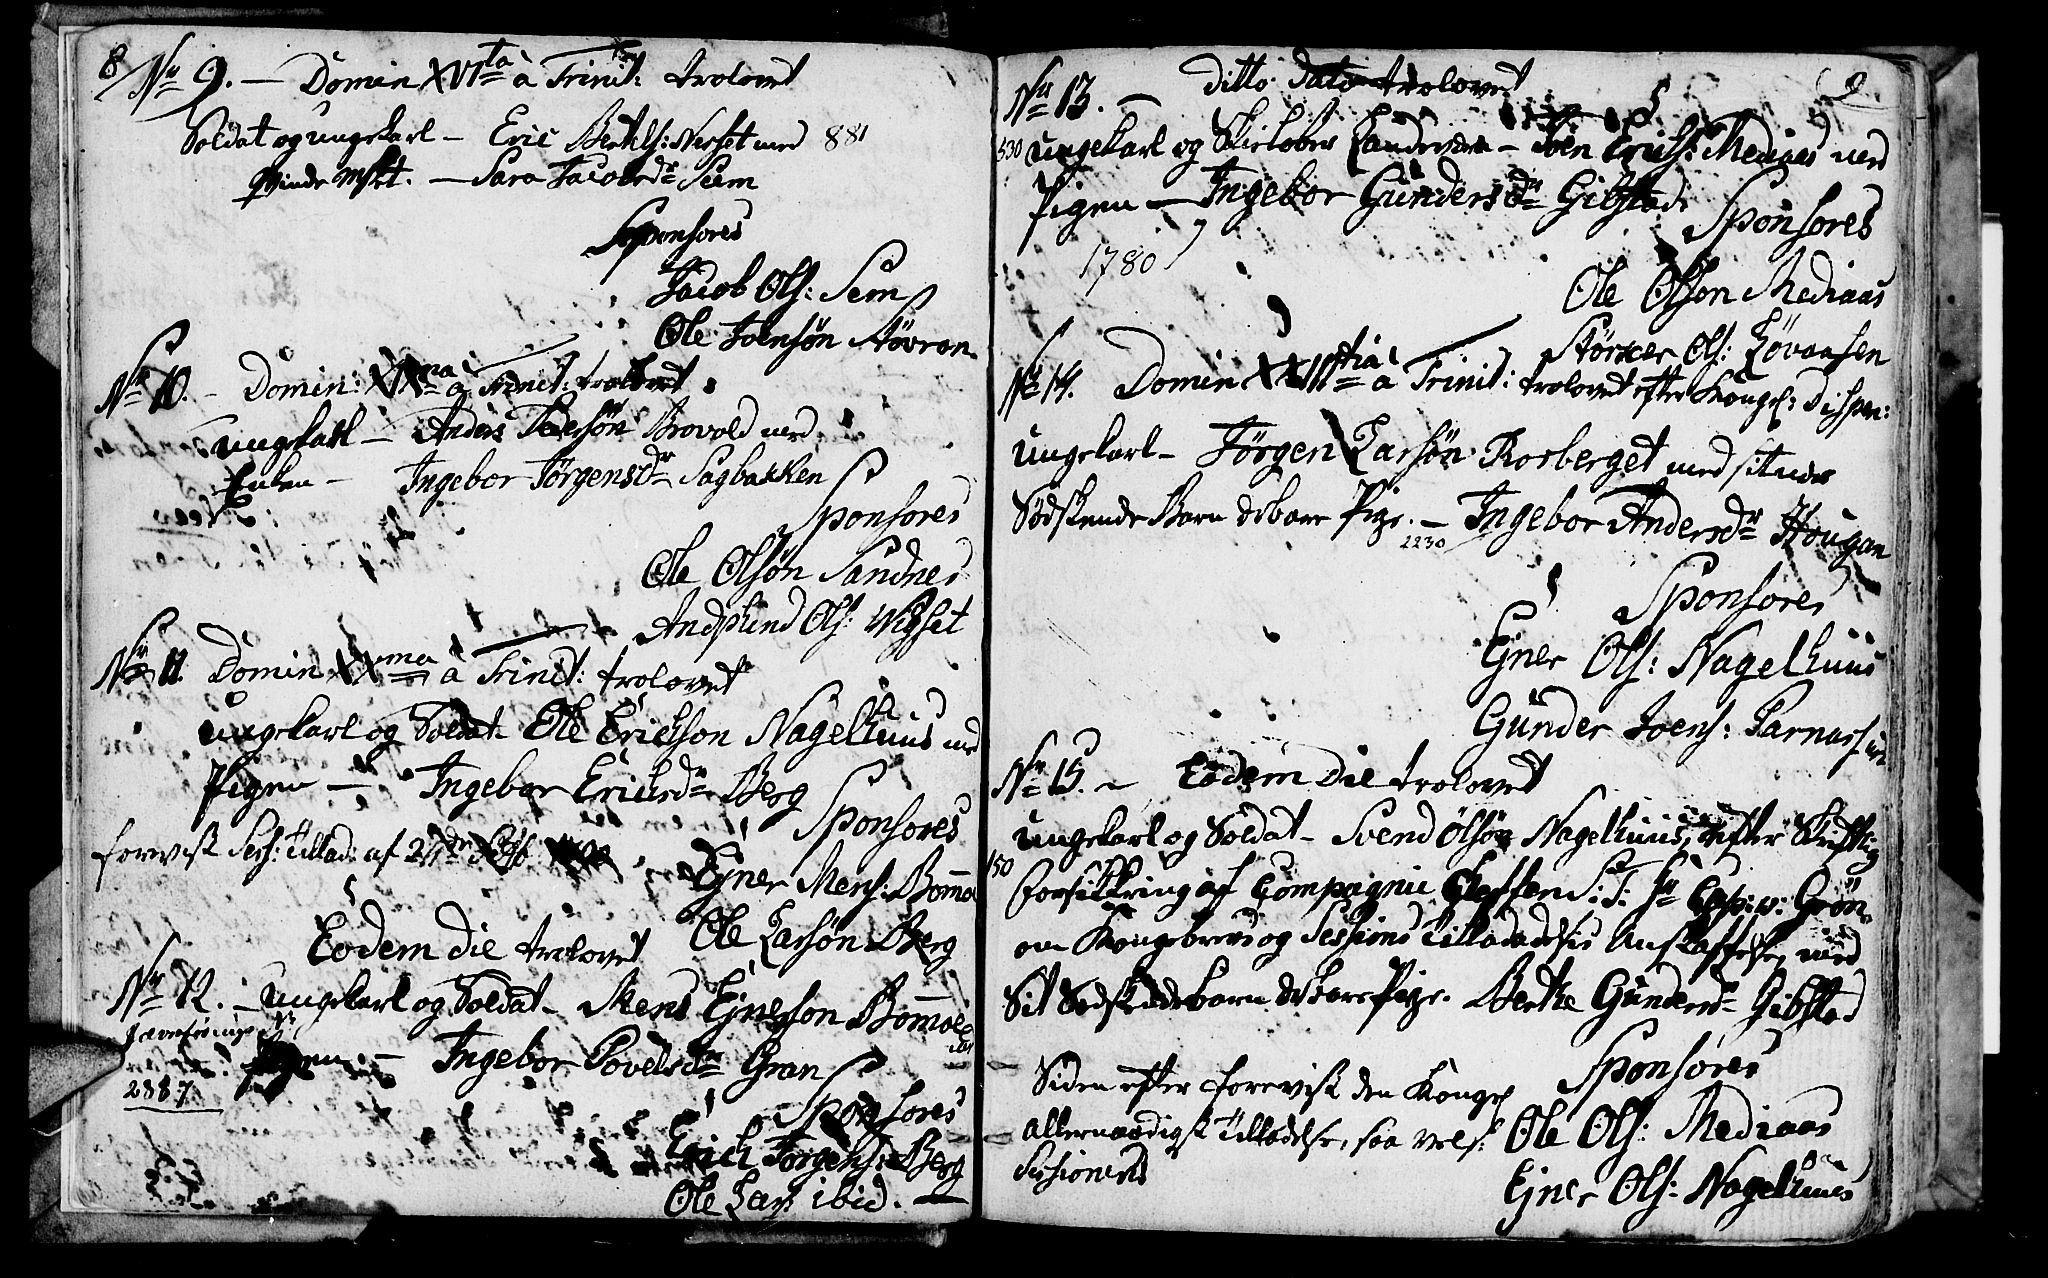 8
No 9. — Domin XVIta à Trinit: trolovet
Soldat og ungekarl — Eric Bertels: Nesset med 881
qvinde msk. — Sara Jacobsdr Seem
Sponsores
Jacob Ols: Sem
Ole Joensøn Støvran
No 10. — Domin: XIXna à Trinit: trolovet
Ungekarl — Anders Pedersøn Brovold med
Enken — Ingebor Jørgensdr Sagbakken
Sponsores
Ole Olsøn Sandnes
Andphind Ols:
No 11. Domin XXma à Trinit: trolovet
Ungekarl og Soldat Ole Erichson Nagelhuus med
Pigen — Ingebor Ericsdr Berg
Sponsores
forevist Sess: Tillad: af 27de
Ejner Mens: Bomoe
Ole Larsøn Berg
Eodem die trolovet
No 12. — ungekarl og Soldat — Mens Ejnerson Bomoe
Pigen — Ingebor Povelsdr Gran
2887
Sponsores
Erich Jørgens: Berg
Ole Lars: ibid.
9
No 13. — ditto dato trolovet
530 ungekarl og Skieløber Landevern — Joen Erichs: Mediaas med
Pigen — Ingebor Gundersdr Gibstad
1780
Sponsores
Ole Olson Mediaas
Størcer Ols: Løvaasen
No 14. Domin XXIIItia à Trinit: trolovet efter Kongel: Dispen:
Ungekarl — Jørgen Larsøn Rosberget med sit
Sødskende Barn ærbare Pige. — Ingebor Andersdr Hougan
2230
Sponsores
Ejner Ols: Nagelhuus
Gunder Joens: Parnas
No 15. — Eodem Die trolovet
ungekarl og Soldat — Svend Olsøn Nagelhuus, efter Skriftlig
150 forsikkring af Compagnie Cheffen S: T: Hr Capt: v: Grön
om Kongebrevs og Sessions Tilladelses Anskaffelse, med
Sit Sødskendebarn ærbare Pige. Berthe Gundersdr Gibstad
Sponsores
Siden efter forevist den Kongel
allernaadigst Tilladelse, saa vels:
Sessionens
Ole Ols: Mediaas
Ejner Ols: Nagelhuus